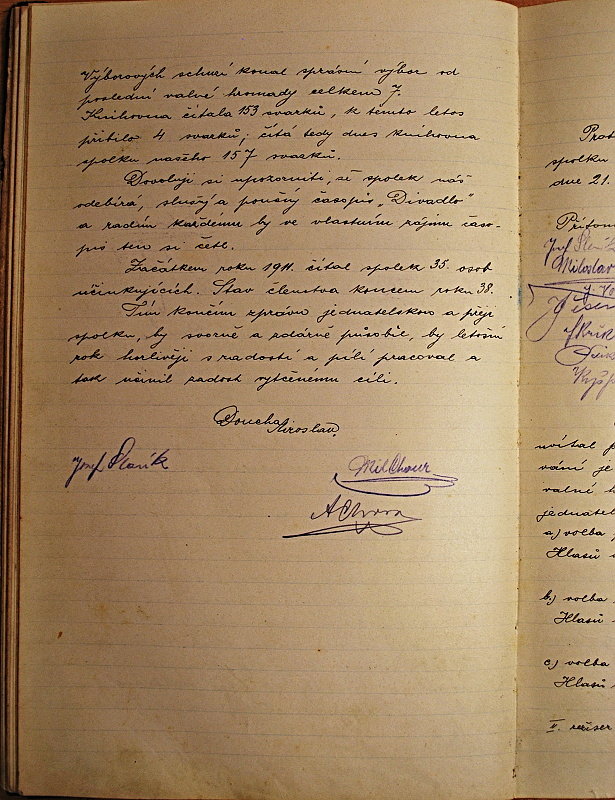 Výborových schuzí konal správní výbor od
poslední valné hromady celkem 7.
Knihovna čítala 153 svazků, k temto letos
přibilo 4 svazků; čítá tedy dnes knihovna
spolku našeho 157 svazků.
Dovoluji si upozorniti, že spolek náš
odebírá, slušný a poučný časopis „Divadlo"
a radím každému by ve vlastním zájmu časo-
pis ten si četl.
Začátkem roku 1911. čítal spolek 35. osob
účinkujících. Stav členstva koncem roku 38.
Tím končím zprávu jednatelskou a přeji
spolku, by svorně a zdárně působil, by letošní
rok horlivěji s radostí a pílí pracoval a
tak učinil zadost vytčenému cíli.
Doucha
Miroslav.
Josef Slavík
Mil Chour
Prot
spolku
dne 21.
Přítom
Josef
Miloslav
uvítal
vání je
valné
jednatel
a) volba
Hlasů
b) volba
Hlasů
c) volba
Hlasů
II. režiser